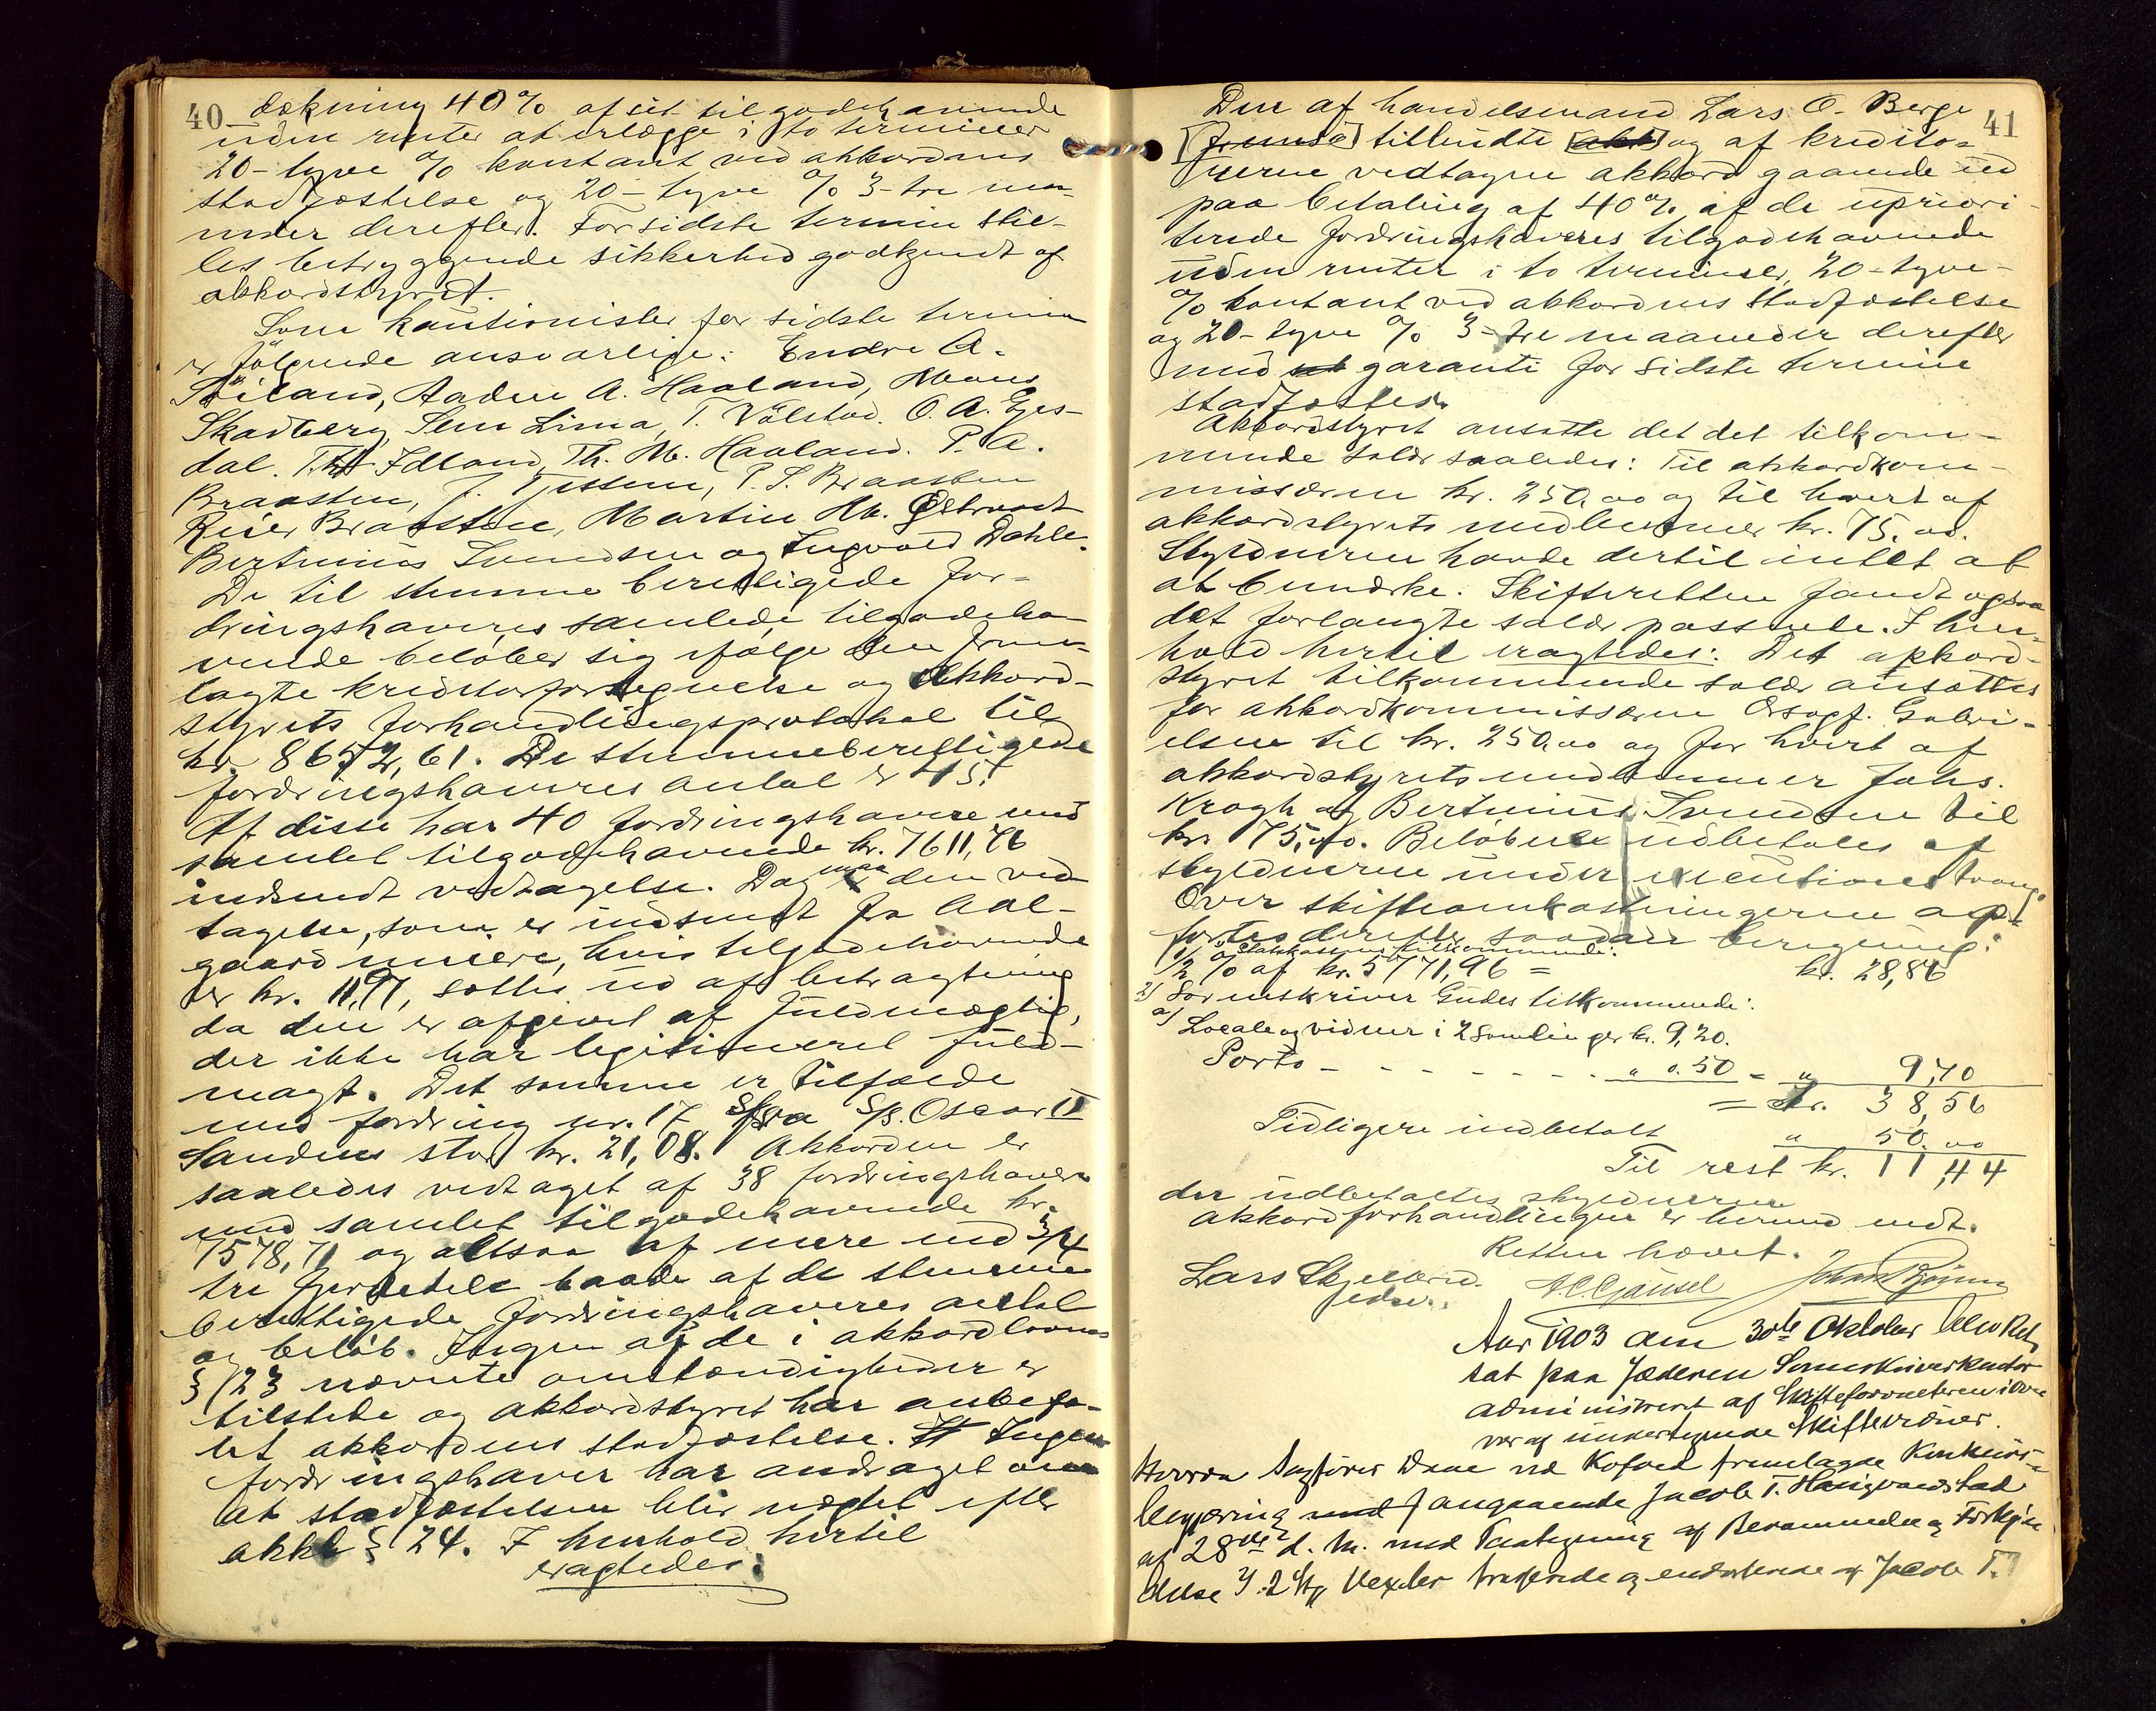 40
dækning 40% af sit tilgodehavende
uden renter at erlægge i to terminer
20 - tyve % kontant ved akkordens
stadfæstelse og 20 - tyve % 3 - tre maa-
neder derefter. For sidste termin stil-
les betryggende sikkerhed godkjendt af
akkordstyret.
Som kautionister for sidste termin
er følgende ansvarlige: Endre A.
Aaden A. Haaland, Mons
Skadberg, Sem Lima, T. Vølstad. O. A. Gjes-
dal. Idland, Th. M. Haaland. P. A.
Braasten, J. Tjessem, P. S. Braasten
Reier Braasten, Martin M. Østraadt
Bertinius Svendsen og Ingvald Dahle.
De til stemme berettigede for-
dringshaveres samlede tilgodeha-
vende beløber sig ifølge den frem-
lagte kreditorfortegnelse og akkord-
styrets forhandlingsprotokol til
kr. 8652,61. De stemmeberettigede
fordringshaveres antal er 45.
Af disse har 40 fordringshavere med
samlet tilgodehavende kr. 7611,76
indsendt vedtagelse. Dog maa den ved-
tagelse, som er indsendt fra Aal-
gaard meieri, hvis tilgodehavende
er kr. 11,97, sættes ud af betragtning
da den er afgivet af fuldmægtig,
der ikke har legitimeret fuld-
magt. Det samme er tilfælde
med fordring nr. 17 fra Sp. Oscar II
Sandnes stor kr. 21,08. Akkorden er
saaledes vedtaget af 38 fordringshavere
med samlet tilgodehavende kr.
7578,71 og altsaa af mere end 3/4
tre fjerdedele baade af de stemme-
berettigede fordringshaveres antal
og beløb. Ingen af de i akkordlovens
§ 23 nævnte omstændigheder er
tilstede og akkordstyret har anbefa-
let akkordens stadfæstelse. Ingen
fordringshaver har andraget om
at stadfæstelsen blir nægtet efter
akkl § 24. I henhold hertil
eragtedes:
41
Den af handelsmand Lars O. Berge
tilbudte og af kredito-
rerne vedtagne akkord gaaende ud
paa betaling af 40% af de upriori-
terede fordringshaveres tilgodehavende
uden renter i to terminer, 20 - tyve -
% kontant ved akkordens stadfæstelse
og 20 - tyve % 3 - tre maaneder derefter
med garanti for sidste termin
stadfæstes.
Akkordstyret ansatte det det tilkom-
mende salær saaledes: Til akkordkom-
missæren kr. 250,00 og til hvert af
akkordstyrets medlemmer kr. 75,00.
Skyldneren havde dertil intet at
at bemærke. Skifteretten fandt ogsaa
det forlangte salær passende. I hen-
hold hertil eragtedes: Det akkord-
styret tilkommende salær ansættes
for akkordkommissæren Orsagf. Gabri-
elsen til kr. 250,00 og for hvert af
akkordstyrets medlemmer Johs.
Krogh og Bertinius Svendsen til
kr. 75,00. Beløbene udbetales af
skyldneren under execution stvang.
Over skifteomkostningerne op-
førtes derefter saadan beregning:
1) Statskassens tilkommende:
1/2 % af kr. 5771,96 = kr. 28,86
2) Sorenskriver Gudes tilkommende:
a) Locale og vidner i 2 samlinger kr. 9,20.
Porto - - - - - - - " 0.50 = " 9,70
= kr. 38,56
Tidligere indbetalt " 50.00
Til rest kr. 11,44
der udbetaltes skyldneren
Akkordforhandlingen er hermed endt.
Retten hævet.
Lars
Aar 1903 den 30te Oktober blev Ret
sat paa Jæderens Sorenskriverkontor
administreret af Skifteforvalteren i over
vær af undertegnede Skiftevidner.
Hvorda Sagfører Daae ved Kofoed fremlagde Konkurs-
begjæring angaaende Jacob T. Haugvaldstad
af 28de d. M. med Paategning af Berammelse og Forkyn
delse 2) 2 St. Vexler trukne og endosserede af Jacob T.